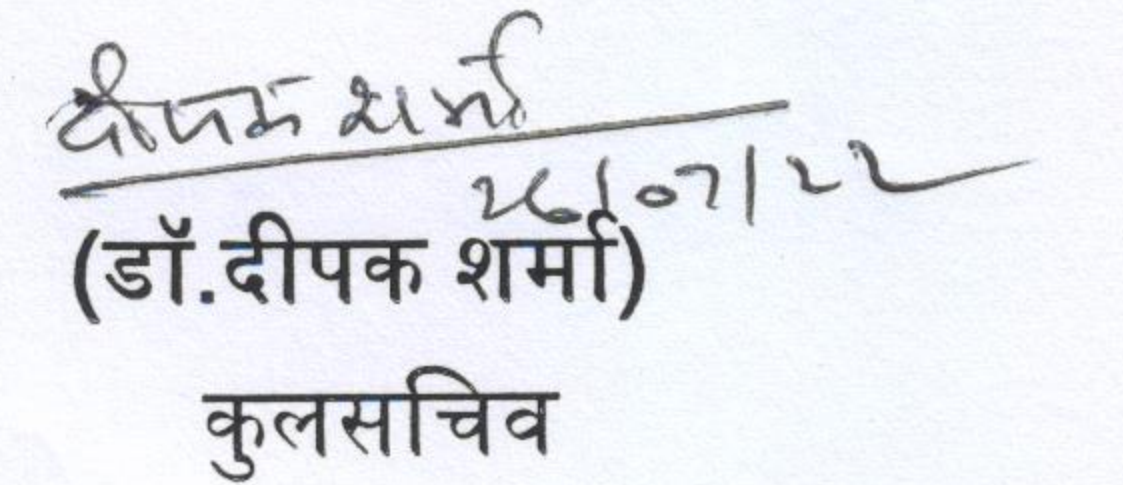 दीपक शर्मा
26/07/22
(डॉ.दीपक शर्मा)
कुलसचिव